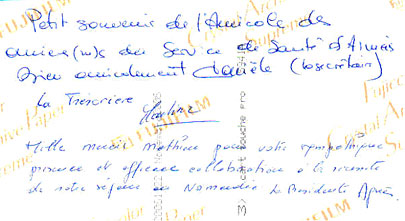 Petit souvenir de l'Amicale des
ancien(ne)s du Service de Santé d'Armées
Bien amicalement Danièle (la secrétaire)
La Trésorière
Mille mercis Mathieu pour votre sympathique
présence et efficace collaboration à la réussite
de notre séjour en Normandie La Présidente Agnès